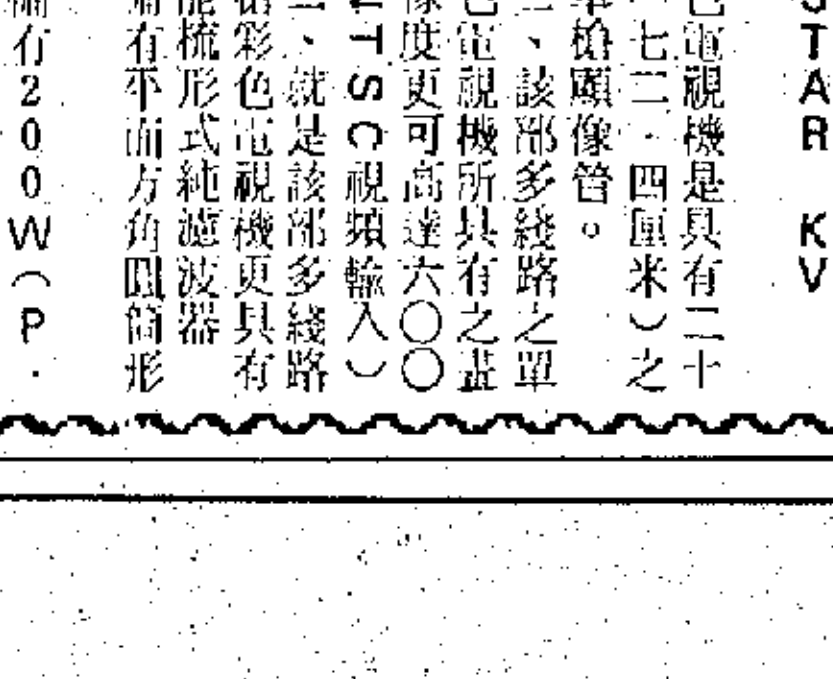 STAR KV
色電視機是具有二十
七二．四厘米）之
單槍顯像管。
、該部多綫路之單
色電視機所具有之畫
像度更可高達六〇〇
NTSC視頻輸入）
、就是該部多綫路
槍彩色電視機更具有
能梳形式純濾波器
備有平面方角圓筒形
備有200W（P．